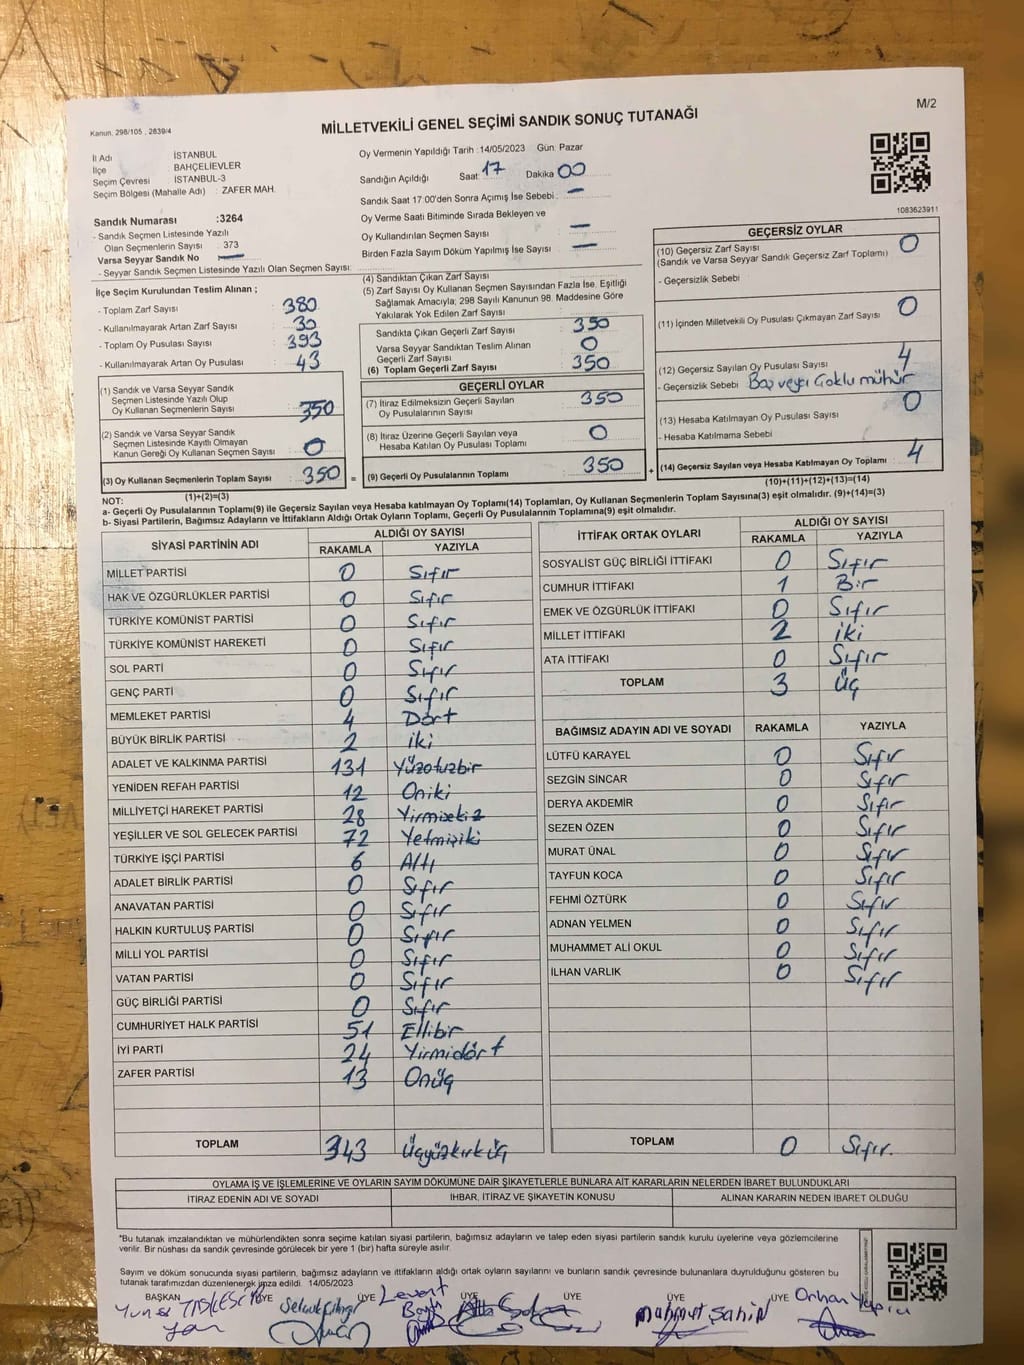 M/2
Kanun, 298/105 , 2839/4
MİLLETVEKİLİ GENEL SEÇİMİ SANDIK SONUÇ TUTANAĞI
İl Adı İSTANBUL
İlçe BAHÇELİEVLER
Seçim Çevresi İSTANBUL-3
Seçim Bölgesi (Mahalle Adı) : ZAFER MAH.
Sandık Numarası :3264
- Sandık Seçmen Listesinde Yazılı
Olan Seçmenlerin Sayısı : 373
Varsa Seyyar Sandık No —
- Seyyar Sandık Seçmen Listesinde Yazılı Olan Seçmen Sayısı:
Oy Vermenin Yapıldığı Tarih :14/05/2023 Gün: Pazar
Sandığın Açıldığı Saat: 17 Dakika 00
Sandık Saat 17:00'den Sonra Açımış İse Sebebi : —
Oy Verme Saati Bitiminde Sırada Bekleyen ve
Oy Kullandırılan Seçmen Sayısı —
Birden Fazla Sayım Döküm Yapılmış İse Sayısı —
1083623911
İlçe Seçim Kurulundan Teslim Alınan ;
- Toplam Zarf Sayısı 380
- Kullanılmayarak Artan Zarf Sayısı 30
- Toplam Oy Pusulası Sayısı 393
- Kullanılmayarak Artan Oy Pusulası 43
(1) Sandık ve Varsa Seyyar Sandık
Seçmen Listesinde Yazılı Olup
Oy Kullanan Seçmenlerin Sayısı 350
(2) Sandık ve Varsa Seyyar Sandık
Seçmen Listesinde Kayıtlı Olmayan
Kanun Gereği Oy Kullanan Seçmen Sayısı 0
(3) Oy Kullanan Seçmenlerin Toplam Sayısı 350 =
(1)+(2)=(3)
(4) Sandıktan Çıkan Zarf Sayısı
(5) Zarf Sayısı Oy Kullanan Seçmen Sayısından Fazla İse, Eşitliği
Sağlamak Amacıyla; 298 Sayılı Kanunun 98. Maddesine Göre
Yakılarak Yok Edilen Zarf Sayısı
Sandıkta Çıkan Geçerli Zarf Sayısı 350
Varsa Seyyar Sandıktan Teslim Alınan
Geçerli Zarf Sayısı 0
(6) Toplam Geçerli Zarf Sayısı 350
GEÇERLİ OYLAR
(7) İtiraz Edilmeksizin Geçerli Sayılan
Oy Pusulalarının Sayısı 350
(8) İtiraz Üzerine Geçerli Sayılan veya
Hesaba Katılan Oy Pusulası Toplamı 0
(9) Geçerli Oy Pusulalarının Toplamı 350 +
GEÇERSİZ OYLAR
(10) Geçersiz Zarf Sayısı 0
(Sandık ve Varsa Seyyar Sandık Geçersiz Zarf Toplamı)
- Geçersizlik Sebebi
(11) İçinden Milletvekili Oy Pusulası Çıkmayan Zarf Sayısı 0
(12) Geçersiz Sayılan Oy Pusulası Sayısı 4
- Geçersizlik Sebebi Boş veya Çoklu mühür
(13) Hesaba Katılmayan Oy Pusulası Sayısı 0
- Hesaba Katılmama Sebebi
(14) Geçersiz Sayılan veya Hesaba Katılmayan Oy Toplamı 4
(10)+(11)+(12)+(13)=(14)
NOT:
a- Geçerli Oy Pusulalarının Toplamı(9) ile Geçersiz Sayılan veya Hesaba katılmayan Oy Toplamı(14) Toplamları, Oy Kullanan Seçmenlerin Toplam Sayısına(3) eşit olmalıdır. (9)+(14)=(3)
b- Siyasi Partilerin, Bağımsız Adayların ve İttifakların Aldığı Ortak Oyların Toplamı, Geçerli Oy Pusulalarının Toplamına(9) eşit olmalıdır.
SİYASİ PARTİNİN ADI ALDIĞI OY SAYISI
RAKAMLA YAZIYLA
MİLLET PARTİSİ 0 Sıfır
HAK VE ÖZGÜRLÜKLER PARTİSİ 0 Sıfır
TÜRKİYE KOMÜNİST PARTİSİ 0 Sıfır
TÜRKİYE KOMÜNİST HAREKETİ 0 Sıfır
SOL PARTİ 0 Sıfır
GENÇ PARTİ 0 Sıfır
MEMLEKET PARTİSİ 4 Dört
BÜYÜK BİRLİK PARTİSİ 2 iki
ADALET VE KALKINMA PARTİSİ 131 Yüzotuzbir
YENİDEN REFAH PARTİSİ 12 Oniki
MİLLİYETÇİ HAREKET PARTİSİ 28 Yirmisekiz
YEŞİLLER VE SOL GELECEK PARTİSİ 72 Yetmişiki
TÜRKİYE İŞÇİ PARTİSİ 6 Altı
ADALET BİRLİK PARTİSİ 0 Sıfır
ANAVATAN PARTİSİ 0 Sıfır
HALKIN KURTULUŞ PARTİSİ 0 Sıfır
MİLLİ YOL PARTİSİ 0 Sıfır
VATAN PARTİSİ 0 Sıfır
GÜÇ BİRLİĞİ PARTİSİ 0 Sıfır
CUMHURİYET HALK PARTİSİ 51 Ellibir
İYİ PARTİ 24 Yirmidört
ZAFER PARTİSİ 13 Onüç
TOPLAM 343 Üçyüzkırküç
İTTİFAK ORTAK OYLARI ALDIĞI OY SAYISI
RAKAMLA YAZIYLA
SOSYALİST GÜÇ BİRLİĞİ İTTİFAKI 0 Sıfır
CUMHUR İTTİFAKI 1 Bir
EMEK VE ÖZGÜRLÜK İTTİFAKI 0 Sıfır
MİLLET İTTİFAKI 2 iki
ATA İTTİFAKI 0 Sıfır
TOPLAM 3 Üç
BAĞIMSIZ ADAYIN ADI VE SOYADI RAKAMLA YAZIYLA
LÜTFÜ KARAYEL 0 Sıfır
SEZGİN SİNCAR 0 Sıfır
DERYA AKDEMİR 0 Sıfır
SEZEN ÖZEN 0 Sıfır
MURAT ÜNAL 0 Sıfır
TAYFUN KOCA 0 Sıfır
FEHMİ ÖZTÜRK 0 Sıfır
ADNAN YELMEN 0 Sıfır
MUHAMMET ALİ OKUL 0 Sıfır
İLHAN VARLIK 0 Sıfır
TOPLAM 0 Sıfır.
OYLAMA İŞ VE İŞLEMLERİNE VE OYLARIN SAYIM DÖKÜMÜNE DAİR ŞİKAYETLERLE BUNLARA AİT KARARLARIN NELERDEN İBARET BULUNDUKLARI
İTİRAZ EDENİN ADI VE SOYADI İHBAR, İTİRAZ VE ŞİKAYETİN KONUSU ALINAN KARARIN NEDEN İBARET OLDUĞU
*Bu tutanak imzalandıktan ve mühürlendikten sonra seçime katılan siyasi partilerin, bağımsız adayların ve talep eden siyasi partilerin sandık kurulu üyelerine veya gözlemcilerine
verilir. Bir nüshası da sandık çevresinde görülecek bir yere 1 (bir) hafta süreyle asılır.
Sayım ve döküm sonucunda siyasi partilerin, bağımsız adayların ve ittifakların aldığı ortak oyların sayılarını ve bunların sandık çevresinde bulunanlara duyrulduğunu gösteren bu
tutanak tarafımızdan düzenlenerek imza edildi. 14/05/2023
BAŞKAN ÜYE ÜYE ÜYE ÜYE ÜYE
Levent mahmut Şahin Orhan